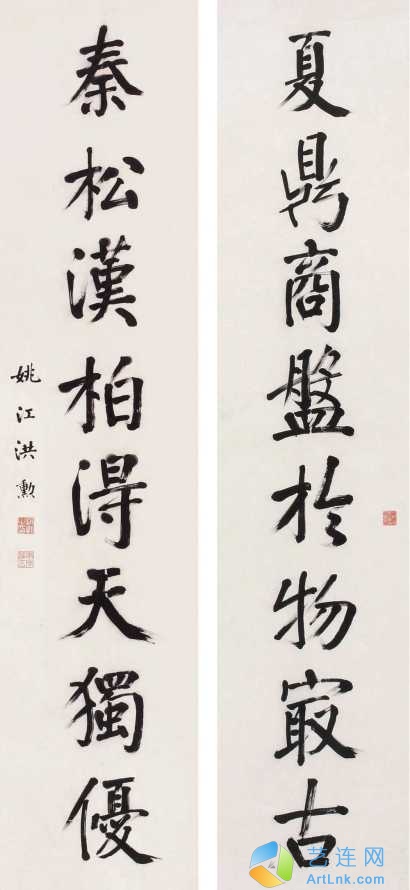 夏鼎商盤於物冣古
秦松漢柏得天獨優
姚江洪勲
艺连网
ArtLnk.com